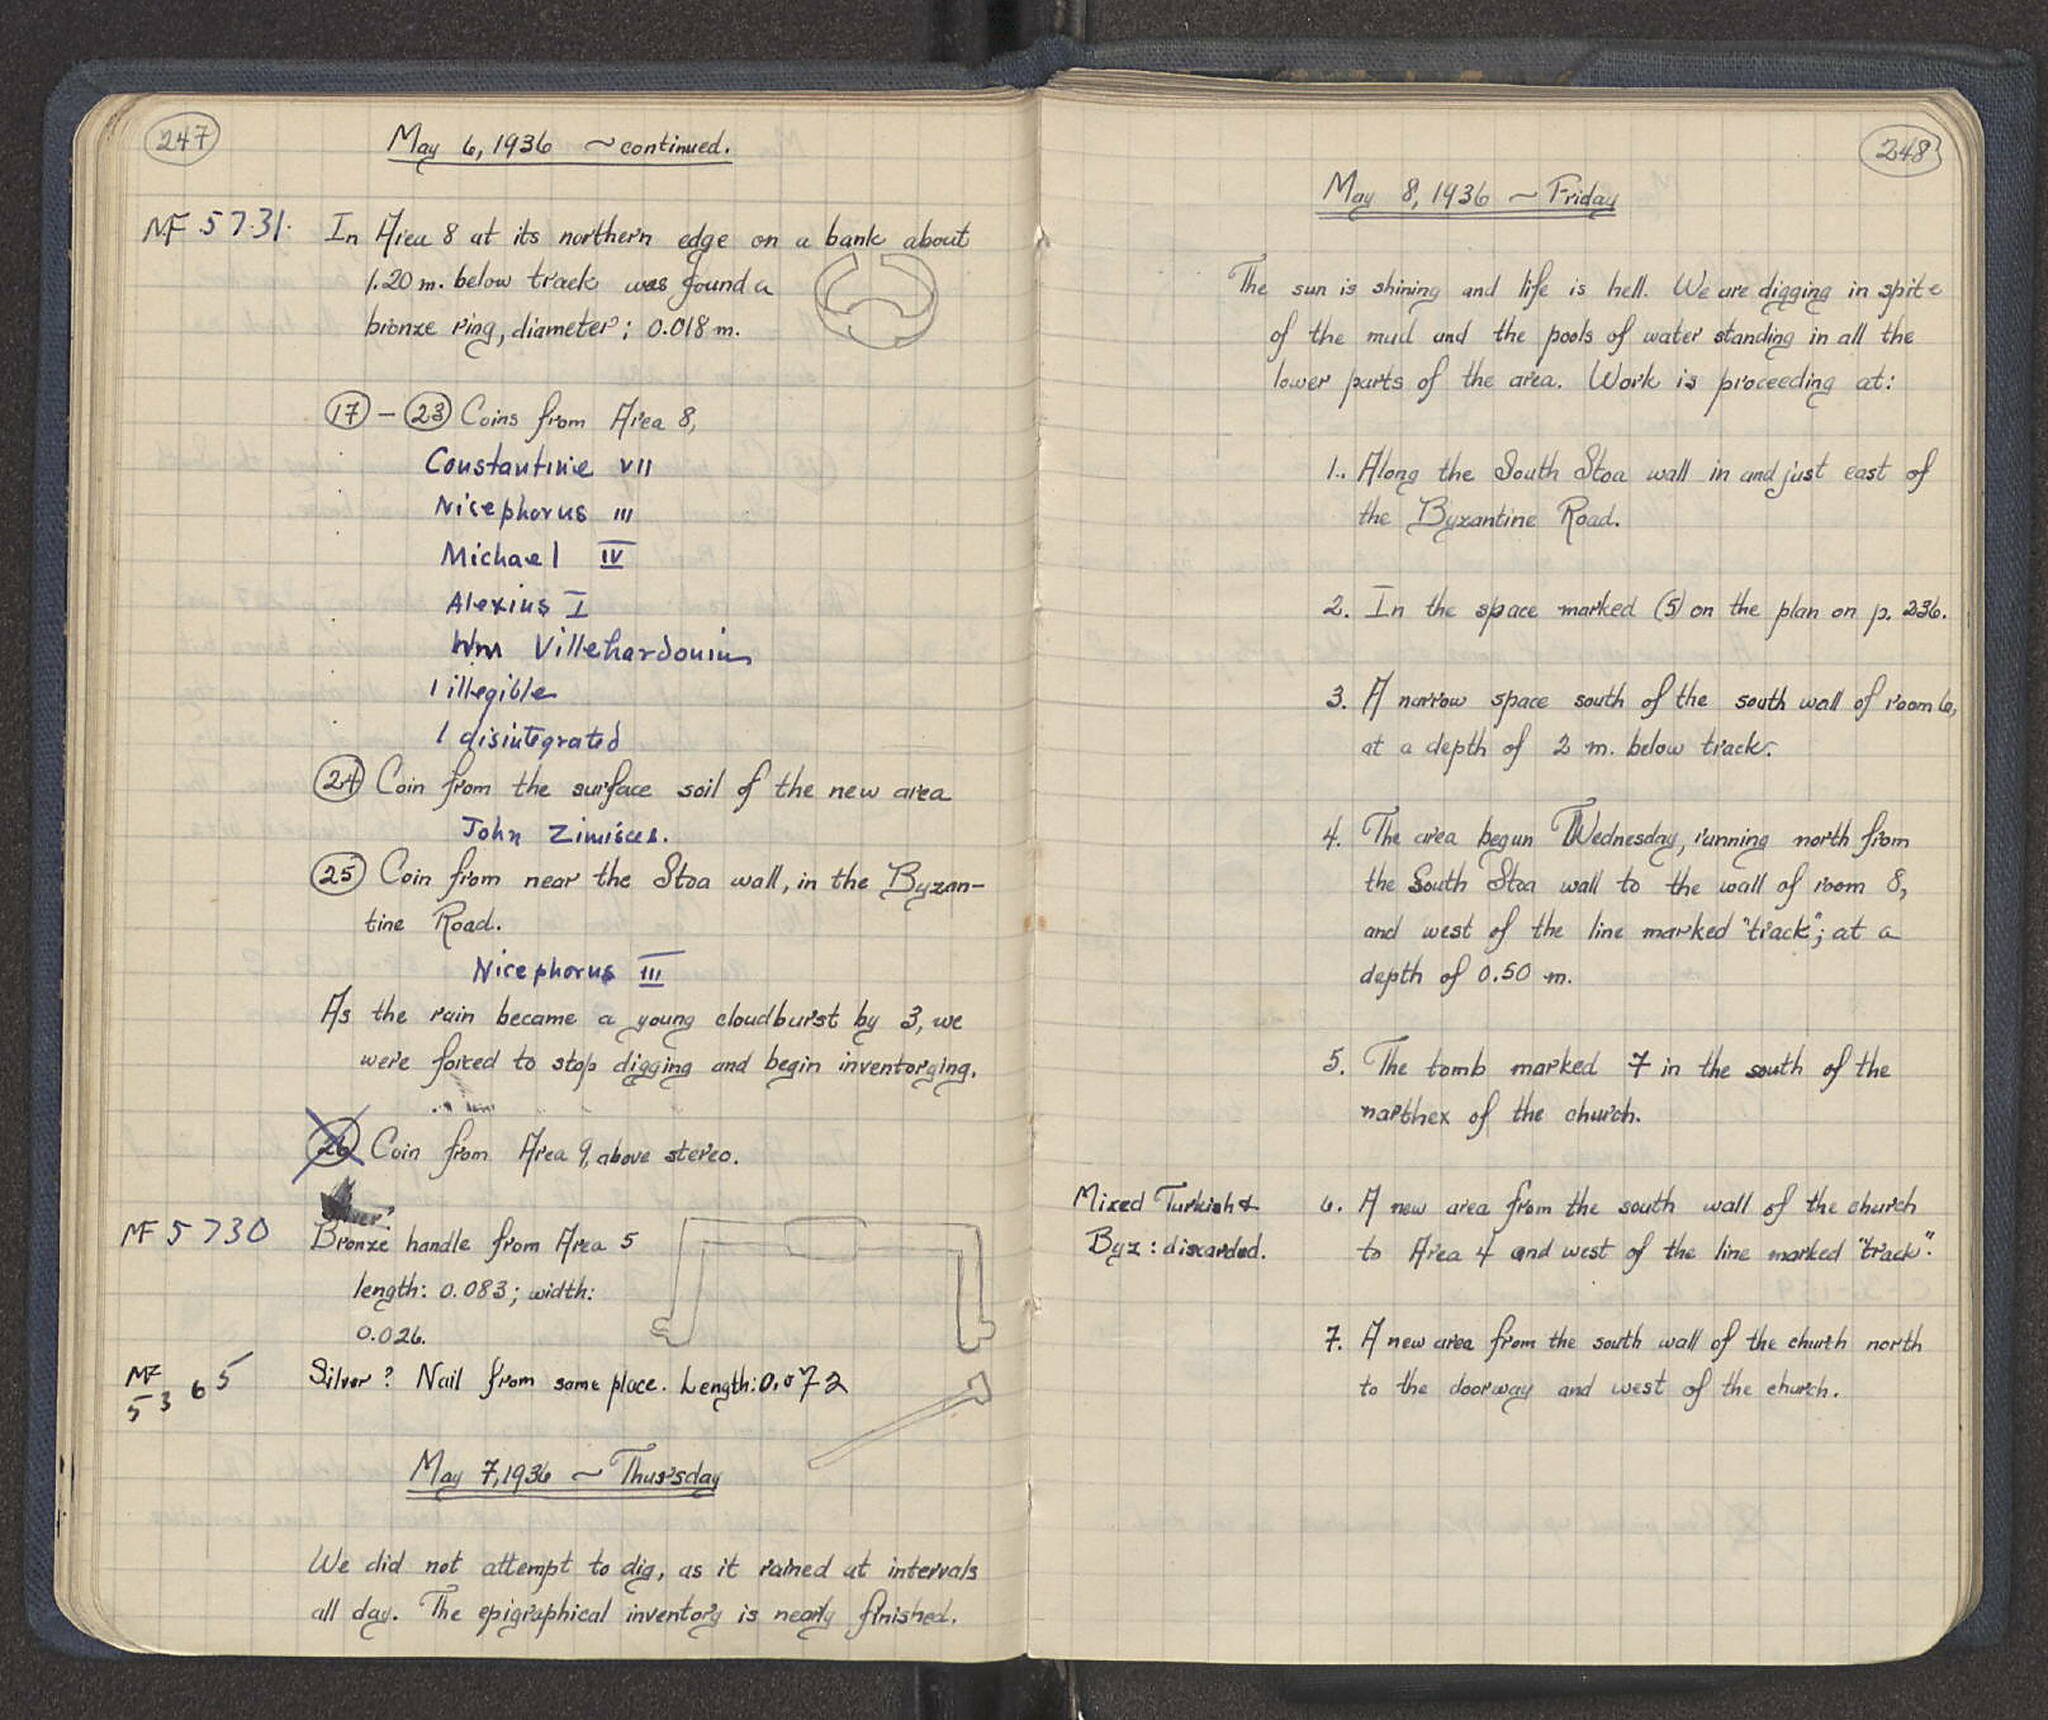 247
May 6, 1936 ~ continued.
MF 5731. In Area 8 at its northern edge on a bank about
1.20 m. below track was found a
bronze ring, diameter: 0.018 m.
17 - 23 Coins from Area 8,
Constantine VII
Nicephorus III
Michael IV
Alexius I
Wm Villehardouin
1 illegible
1 disintegrated
24 Coin from the surface soil of the new area
John Zimisces.
25 Coin from near the Stoa wall, in the Byzan-
tine Road.
Nicephorus III
As the rain became a young cloudburst by 3, we
were forced to stop digging and begin inventorging.
26 Coin from Area 9, above stereo.
Silver?
MF 5730 Bronze handle from Area 5
length: 0.083; width:
0.026.
MF 5365 Silver? Nail from same place. Length: 0.072
May 7, 1936 ~ Thursday
We did not attempt to dig, as it rained at intervals
all day. The epigraphical inventory is nearly finished.
248
May 8, 1936 ~ Friday
The sun is shining and life is hell. We are digging in spite
of the mud and the pools of water standing in all the
lower parts of the area. Work is proceeding at:
1. Along the South Stoa wall in and just east of
the Byzantine Road.
2. In the space marked (5) on the plan on p. 236.
3. A narrow space south of the south wall of room 6,
at a depth of 2 m. below track.
4. The area begun Wednesday, running north from
the South Stoa wall to the wall of room 8,
and west of the line marked "track"; at a
depth of 0.50 m.
5. The tomb marked 7 in the south of the
narthex of the church.
Mixed Turkish &
Byz: discarded.
6. A new area from the south wall of the church
to Area 4 and west of the line marked "track".
7. A new area from the south wall of the church north
to the doorway and west of the church.